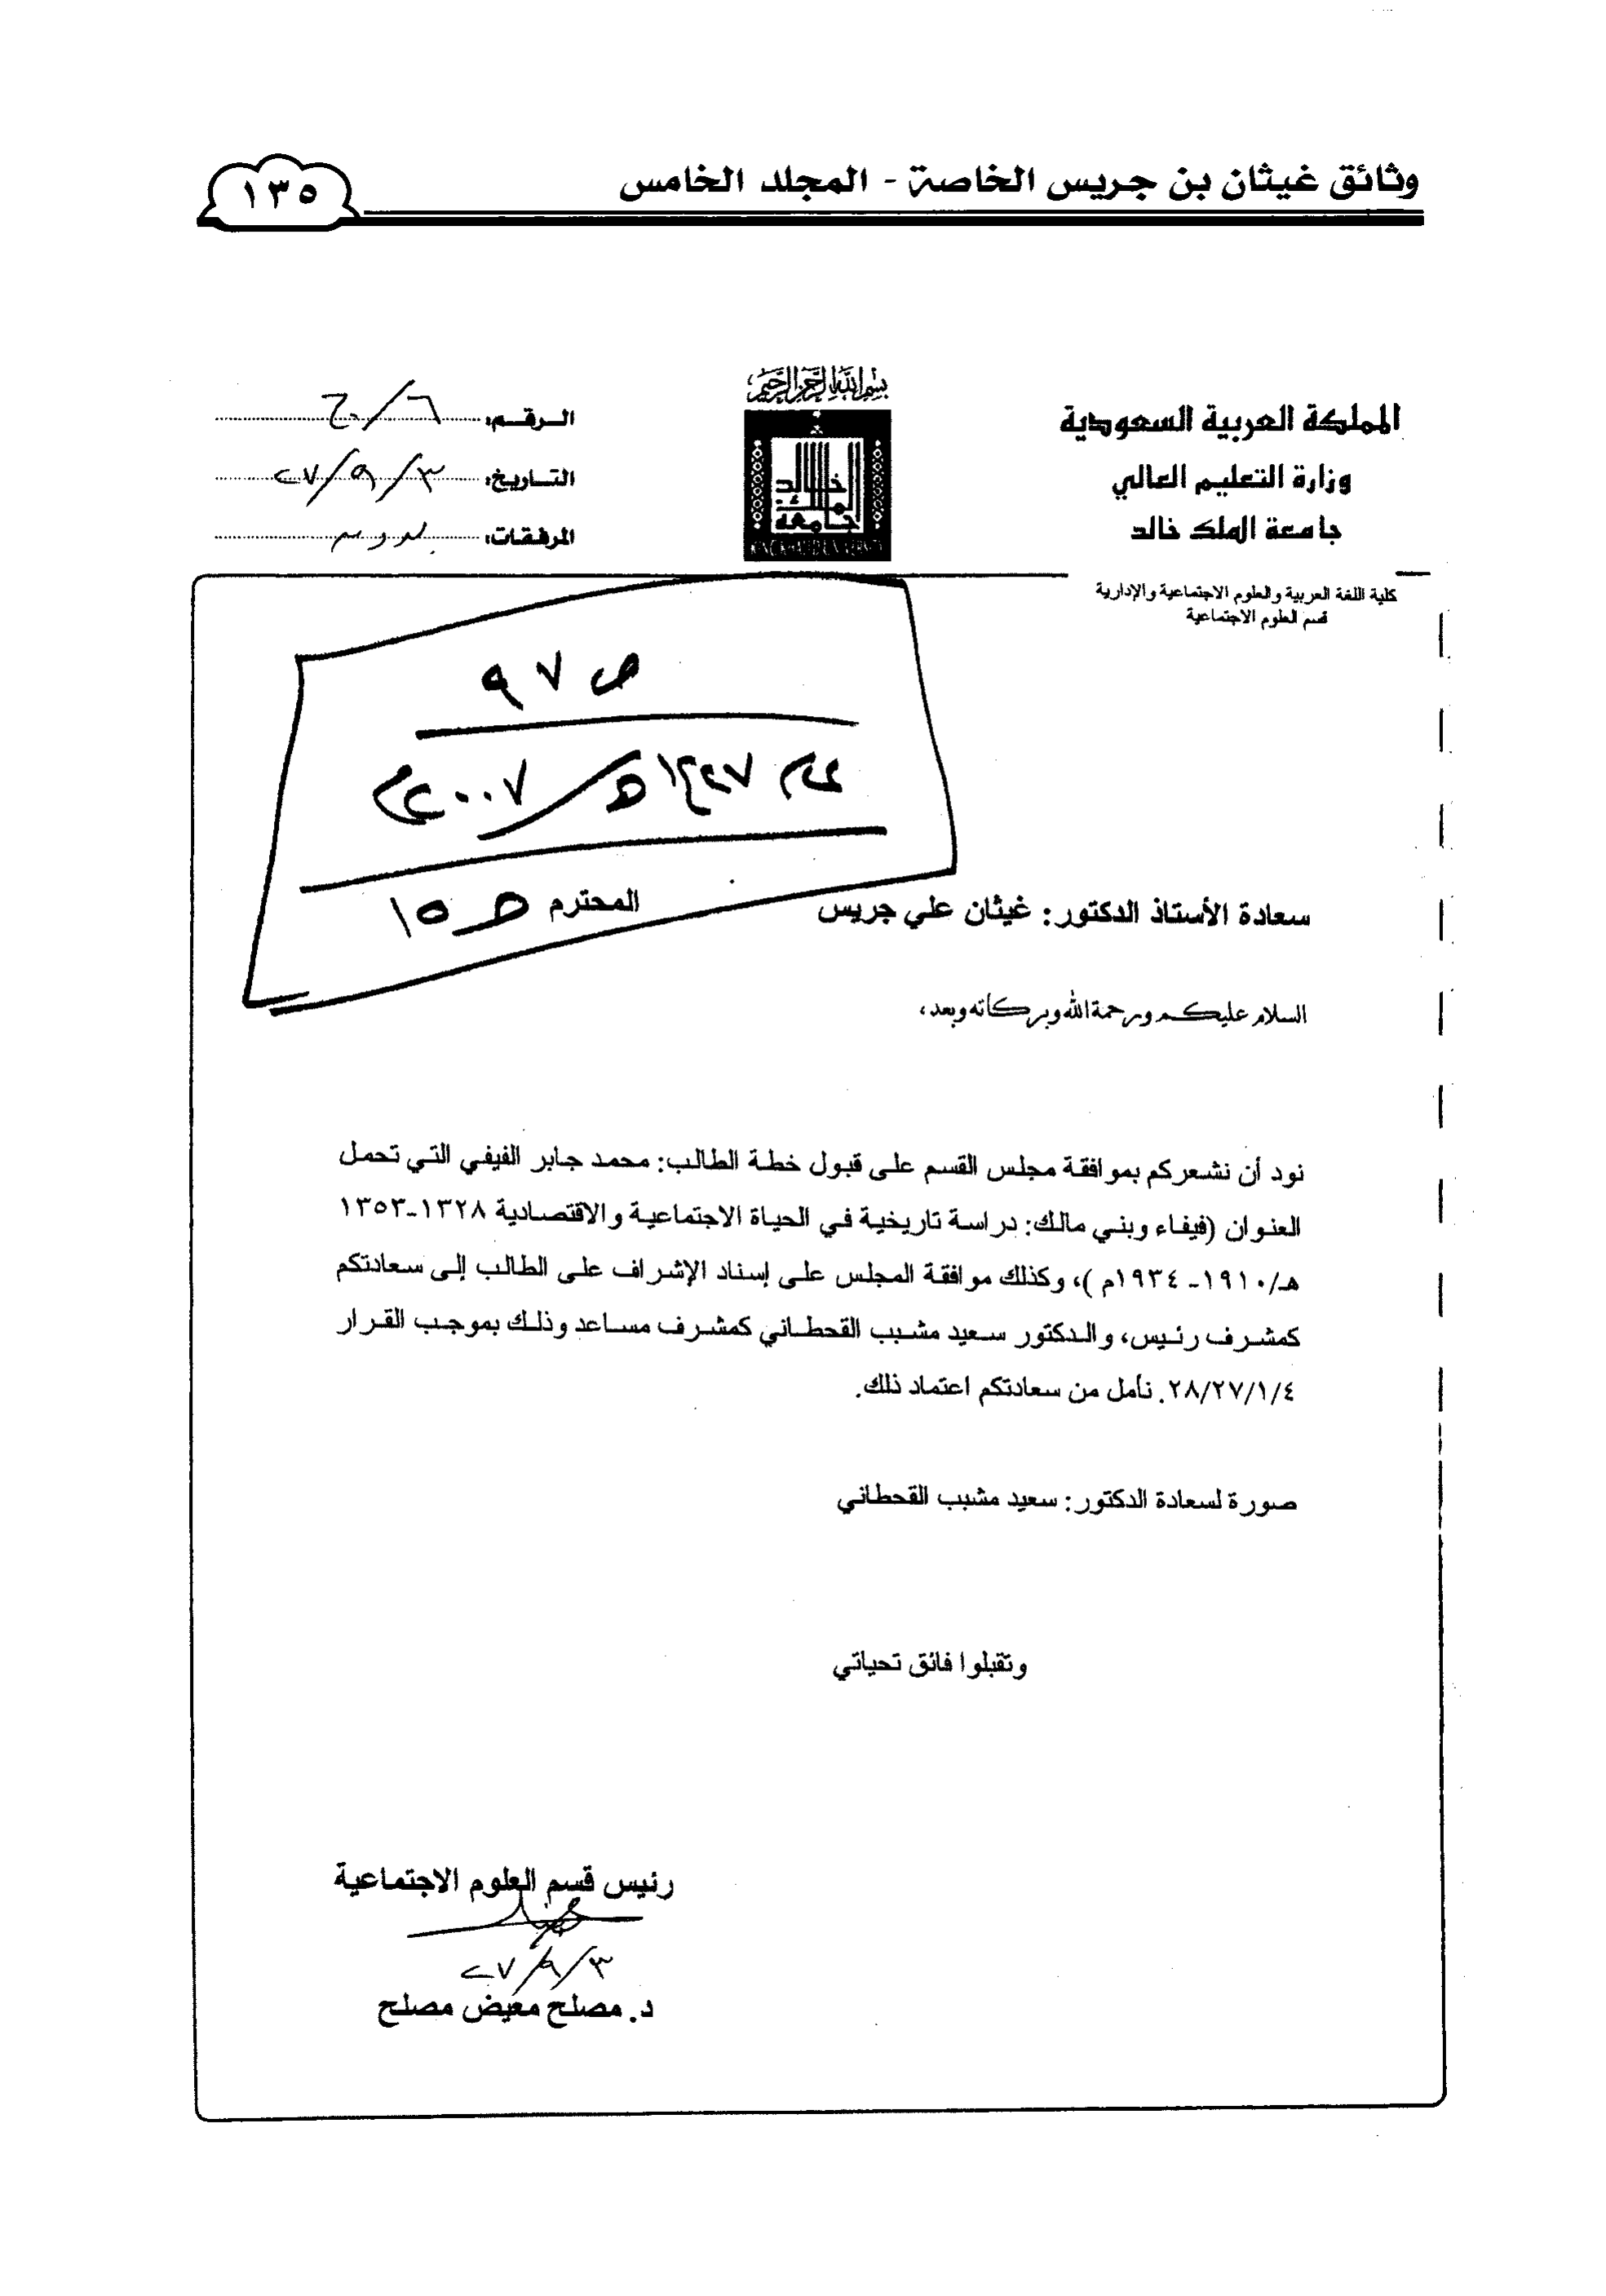 وثائق غيثان بن جريس الخاصة - المجلد الخامس
١٣٥
بسم الله الرحمن الرحيم
المملكة العربية السعودية
وزارة التعليم العالي
جامعة الملك خالد
كلية اللغة العربية والعلوم الاجتماعية والإدارية
قسم العلوم الاجتماعية
جامعة الملك خالد
الرقم:
التاريخ: ٣/٩/٢٧
المرفقات: بدون
ص ٩٧
عام ١٤٢٧هـ/٢٠٠٧م
ص ١٥
سعادة الأستاذ الدكتور: غيثان علي جريس المحترم
السلام عليكم ورحمة الله وبركاته وبعد،
نود أن نشعركم بموافقة مجلس القسم على قبول خطة الطالب: محمد جابر الفيفي التي تحمل
العنوان (فيفاء وبني مالك: دراسة تاريخية في الحياة الاجتماعية والاقتصادية ١٣٢٨-١٣٥٣
هـ/١٩١٠- ١٩٣٤م )، وكذلك موافقة المجلس على إسناد الإشراف على الطالب إلى سعادتكم
كمشرف رئيس، والدكتور سعيد مشبب القحطاني كمشرف مساعد وذلك بموجب القرار
٢٨/٢٧/١/٤. نأمل من سعادتكم اعتماد ذلك.
صورة لسعادة الدكتور: سعيد مشبب القحطاني
وتقبلوا فائق تحياتي
رئيس قسم العلوم الاجتماعية
٣/٩/٢٧
د. مصلح معيض مصلح